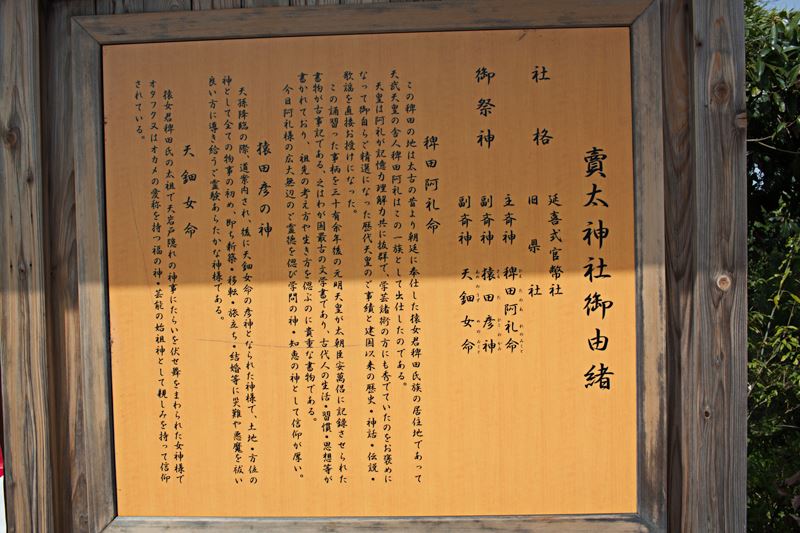 賣太神社御由緒
社格 延喜式官幣社
旧県社
御祭神 主斉神 稗田阿礼命
副斉神 猿田彦神
副斉神 天鈿女命
稗田阿礼命
この稗田の地は太古の昔より朝廷に奉仕した猿女君稗田氏族の居住地であって
天武天皇の舎人稗田阿礼はこの一族として出仕したのである。
天皇は阿礼が記憶力理解力共に抜群で、学芸諸術の方にも秀でていたのをお褒めに
なって御自らご精選になった歴代天皇のご事績と建国以来の歴史・神話・伝説・
歌謡を直接お授けになった。
この誦習った事柄を三十有余年後の元明天皇が太朝臣安萬侶に記録させられた
書物が古事記である。之はわが国最古の文学書であり、古代人の生活・習慣・思想等が
書かれており、祖先の考え方や生き方を偲ぶのに貴重な書物である。
今日阿礼様の広大無辺のご霊徳を偲び学問の神・知恵の神として信仰が厚い。
猿田彦の神
天孫降臨の際、道案内され、後に天鈿女命の彦神となられた神様で、土地・方位の
神として全ての物事の初め、即ち新築・移転・旅立ち・結婚等に災難や悪魔を祓い
良い方に導き給うご霊験あらたかな神様である。
天鈿女命
猿女君稗田氏の太祖で天岩戸隠れの神事にたらいを伏せ舞をまわられた女神様で
オタフク又はオカメの愛称を持つ福の神・芸能の始祖神として親しみを持って信仰
されている。